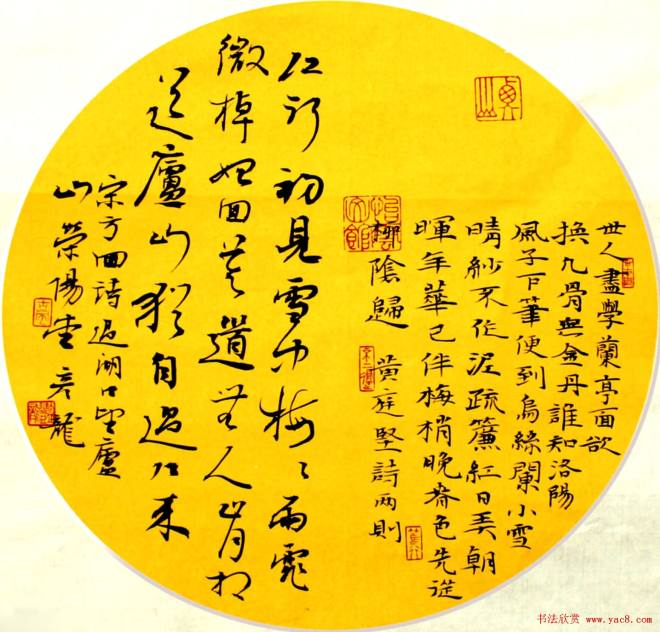 世人盡學蘭亭面欲
換凡骨無金丹誰知洛陽
風子下筆便到烏絲闌小雪
晴紗不作泥疏簾紅日弄朝
暉年華已伴梅梢晚春色先從
柳陰歸 黃庭堅詩兩則
江行初見雪中梅々雨霏
微棹始回莫道無人肯相
送廬山猶自過江來
宋方回詩過湖口望廬
山 榮陽堂彦龍
书法欣赏 www.yac8.com